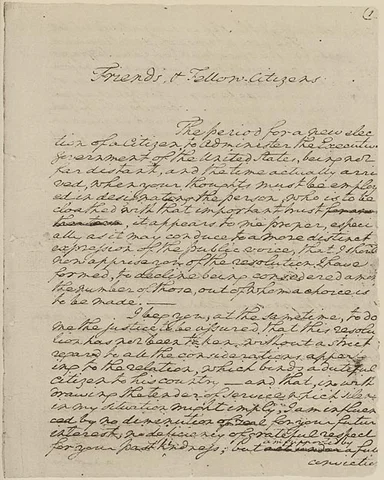 (1
Friends, & Fellow-Citizens
The period for a new elec-
tion of a Citizen, to administer the Executive
Government of the United States, being not
far distant, and the time actually arri
ved, when your thoughts must be employ
ed in designating the person, who is to be
cloathed with that important trust
it appears to me proper, especi
ally, as it may conduce to a more distinct
expression of the public voice, that I should
now apprise you of the resolution I have
formed, to decline being considered among
the number of those, out of whom a choice is
to be made.—
I beg you, at the same time, to do
me the justice to be assured, that this resolu
tion has not been taken, without a strict
regard to all the considerations apper-
taining to the relation, which binds a dutiful
Citizen to his country—and that, in with
drawing the tender of service which silence
in my situation might imply, I am influen
ced by no diminution of zeal for your future
interest, no deficiency of grateful respect
am supported by
for your past kindness; but a full
conviction